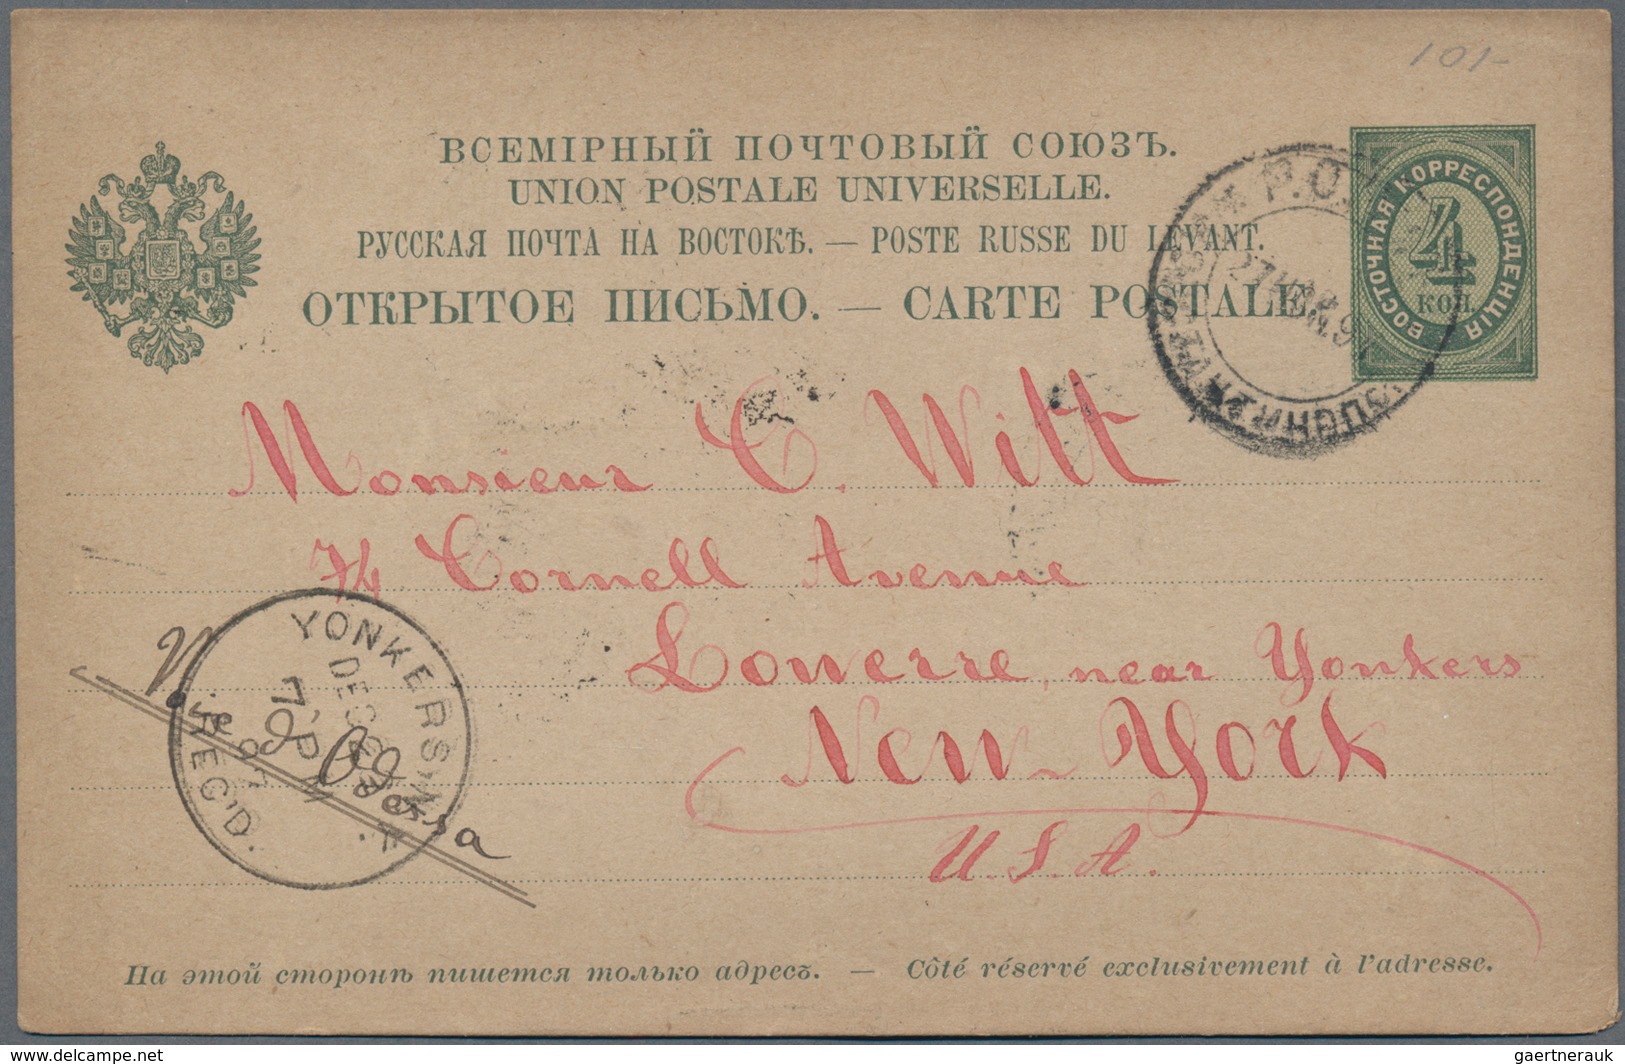 101-
ВСЕМІРНЫЙ ПОЧТОВЫЙ СОЮЗЪ.
UNION POSTALE UNIVERSELLE.
РУССКАЯ ПОЧТА НА ВОСТОКѢ. — POSTE RUSSE DU LEVANT.
ОТКРЫТОЕ ПИСЬМО. — CARTE POSTALE.
ВОСТОЧНАЯ КОРРЕСПОНДЕНЦІЯ
4
КОП.
Р.О.
27 НОЯ.97
Monsieur C. Witt
74 Cornell Avenue
Lowerre, near Yonkers
New-York
U.S.A.
YONKERS, N.Y.
DEC
7, P
REC'D.
Odessa
На этой сторонѣ пишется только адресъ. — Côté réservé exclusivement à l'adresse.
www.delcampe.net
gaertnerauk